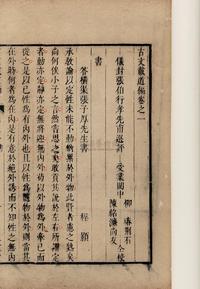 古文載道編卷之一
儀封張伯行孝先甫選評 受業閩中
柳 荊石
陳紹濂尚友 全校
書
答橫渠張子厚先生書 程顥
承教諭以定性未能不動猶累於外物此賢者慮之熟矣
尚何俟小子之言然嘗思之矣敢貢其說於左右所謂定
者動亦定靜亦定無將迎無內外苟以外物為外牽己而
從之是以己性為有內外也且以性為隨物於外則當其
在外時何者為在內是有意於絕外誘而不知性之無內